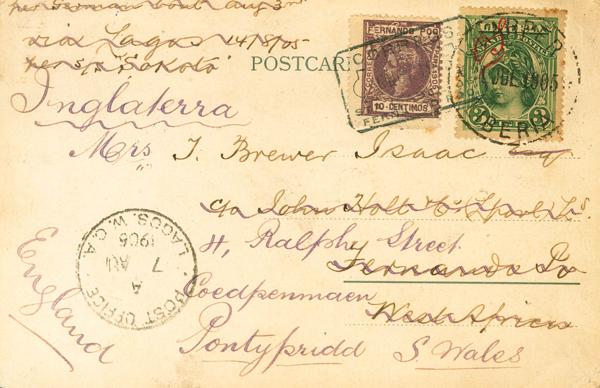 per German boat Aug 3rd
via Lagos 14/8/05
per s/s "Sokoto"
POSTCAR
FERNANDO POO
10-CENTIMOS
CORREOS
JUL 1905
BERIA
Inglaterra
Mrs J. Brewer Isaac
c/o John Holt & Co
4, Ralphs Street
Fernando Po
Coedpenmaen
West Africa
Pontypridd S. Wales
England
POST OFFICE
LAGOS. W.C.A.
A
7
AU
1905